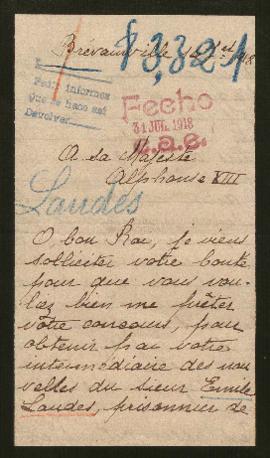 Brévainville
83.321
Pedir informes
que se hace así
Devolver
Fecho
31 JUL. 1918
L.a.e.
A sa Majesté
Alphonse XIII
Landes
O, bon Roi, je viens
solliciter votre bonté
pour que vous vou-
lez bien me prêter
votre concours, pour
obtenir par votre
intermédiaire des nou
velles du sieur Emile
Landes, prisonnier de